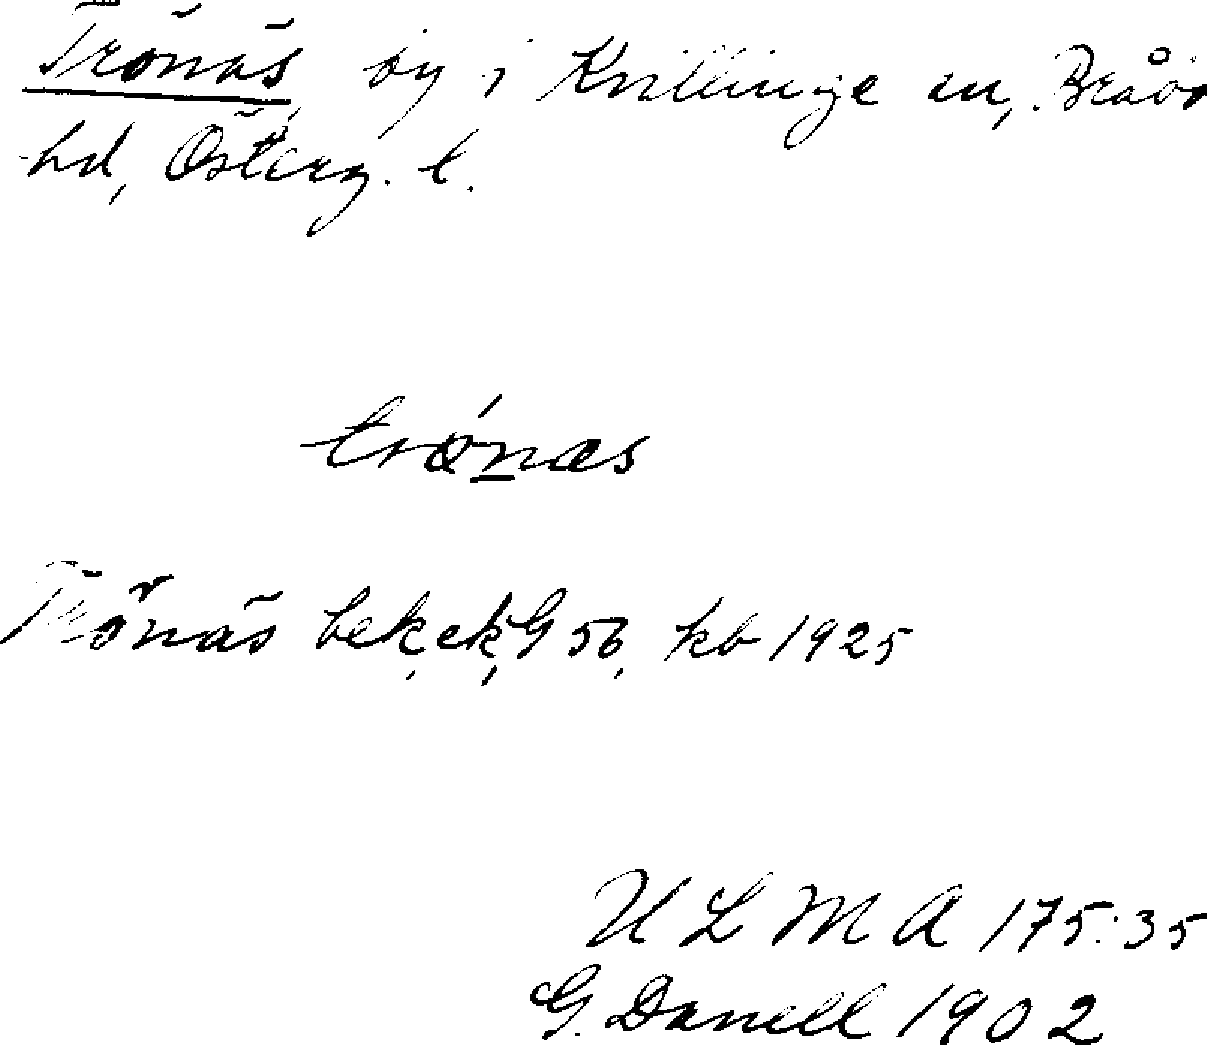 Trönäs, by i Kvillinge sn, Bråbo
hd, Österg. l.
trǿnæs
Trönäs bek, ek, G 56, kb 1925
ULMA 175:35
G. Danell 1902